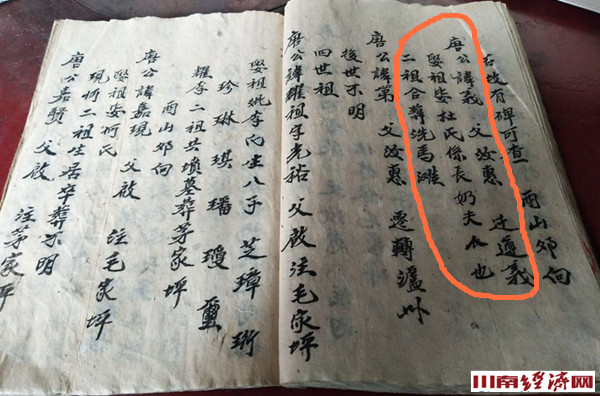 坟有碑可查 酉山卯向
唐公諱義 父汝惠 遵義
娶祖妣杜氏係長奶夫人也
二祖合葬洗馬灘
唐公諱第 父汝惠 遷轉瀘州
後世不明
四世祖
唐公諱耀祖字光裕 父啟 注毛家坪
娶祖妣李氏生八子 芝璋珩
珍琳琪璠瓊璽
耀李二祖共墳墓葬茅家坪
酉山卯向
唐公諱嘉現 父啟 注毛家坪
娶祖妣何氏
現何二祖生居卒葬不明
唐公嘉賢 父啟 注茅家坪
川南經濟网